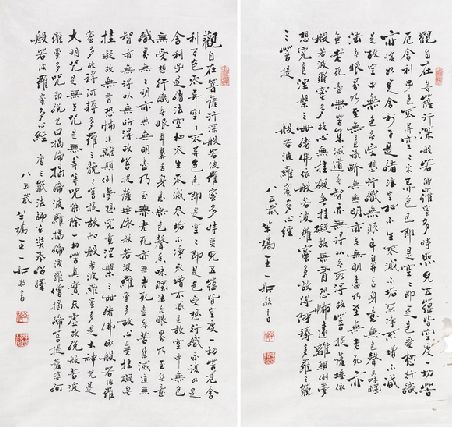 觀自在菩薩行深般若波羅蜜多時照見五蘊皆空度一切苦
厄舍利子色不異空空不異色色即是空空即是色受想行識
亦復如是舍利子是諸法空相不生不滅不垢不淨不增不減
是故空中無色無受想行識無眼耳鼻舌身意無色聲香味觸
法無眼界乃至無意識界無無明亦無無明盡乃至無老死亦
無老死盡無苦集滅道無智亦無得以無所得故菩提薩埵依
般若波羅蜜多故心無罣礙無罣礙故無有恐怖遠離顛倒夢
想究竟涅槃三世諸佛依般若波羅蜜多故得阿耨多羅三藐
三菩提
般若波羅蜜多心經
八五歲
觀自在菩薩行深般若波羅蜜多時照見五蘊皆空度一切苦厄舍
利子色不異空空不異色色即是空空即是色受想行識亦復如是
舍利子是諸法空相不生不滅不垢不淨不增不減是故空中無色
無受想行識無眼耳鼻舌身意無色聲香味觸法無眼界乃至無意
識界無無明亦無無明盡乃至無老死亦無老死盡無苦集滅道無
智亦無得以無所得故菩提薩埵依般若波羅蜜多故心無罣礙無
罣礙故無有恐怖遠離顛倒夢想究竟涅槃三世諸佛依般若波羅
蜜多故得阿耨多羅三藐三菩提故知般若波羅蜜多是大神咒是
大明咒是無上咒是無等等咒能除一切苦真實不虛故說般若波
羅蜜多咒即說咒曰揭諦揭諦波羅揭諦波羅僧揭諦菩提薩婆訶
般若波羅蜜多心經 唐三藏法師玄奘
八五歲